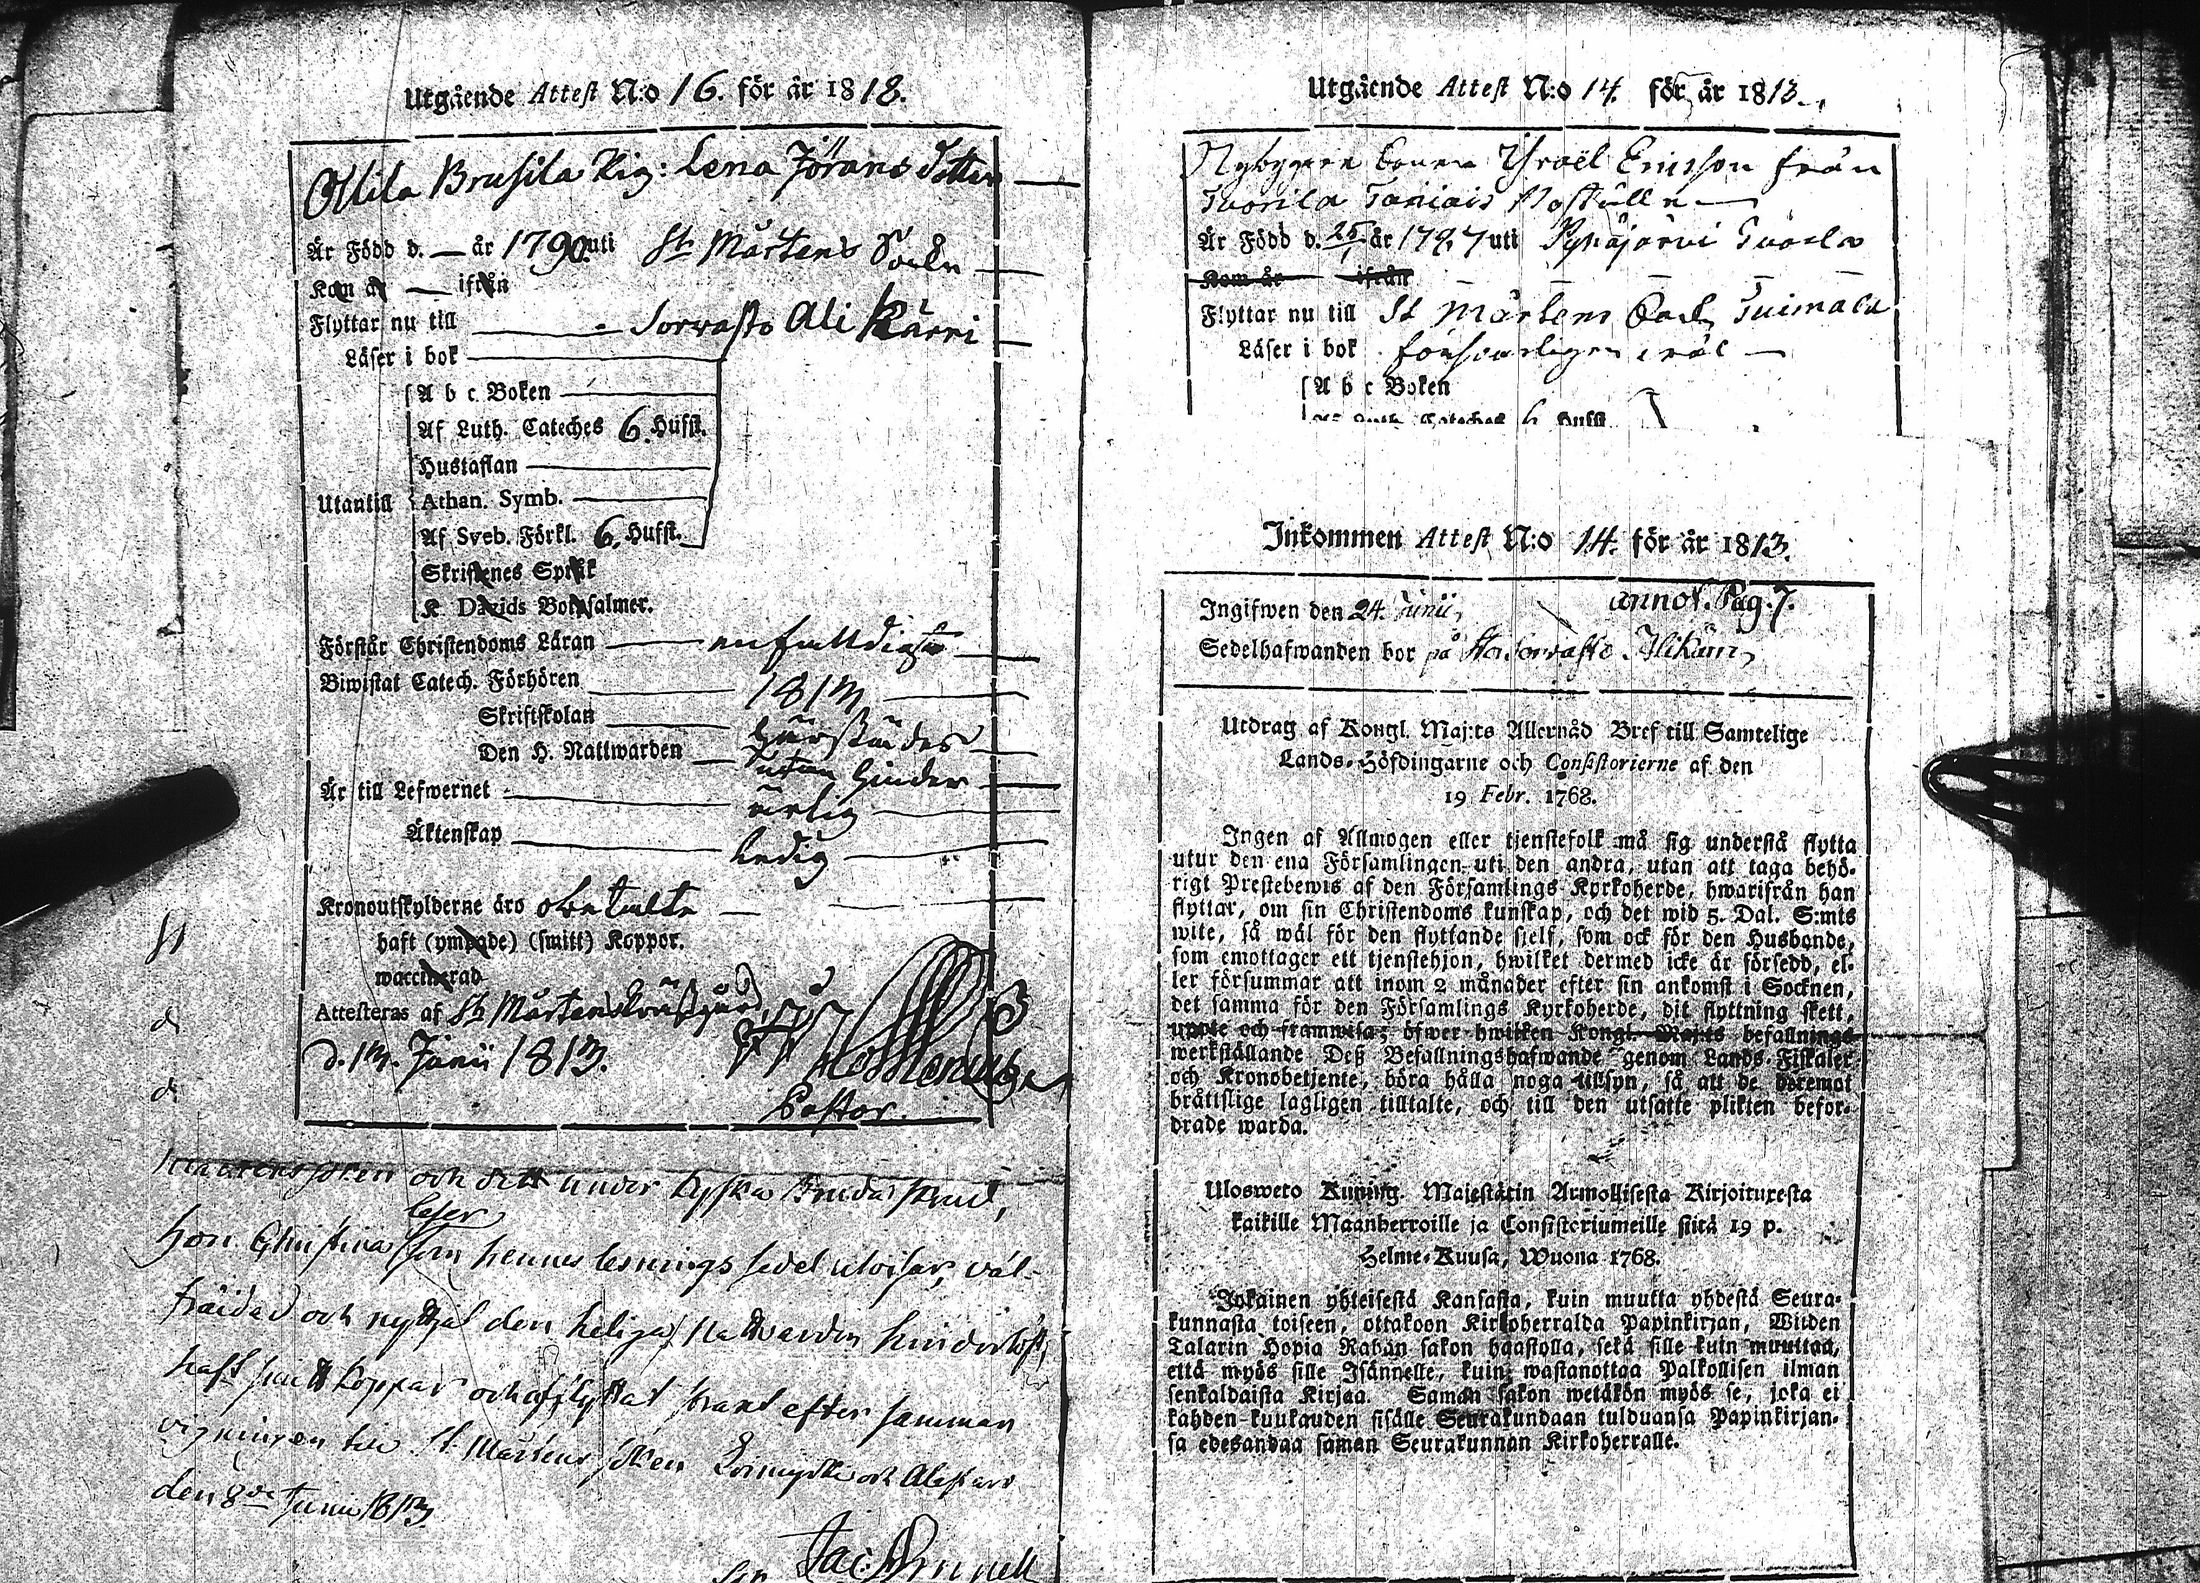 Utgående Attest N:o 16. för år 1813.
Ollila Brusila Pig: Lena Jörans dotter
Är Född d. — år 1790 uti St Mårtens Sockn
Kom år — ifrån
Flyttar nu till — Sorwasto Ali Kärri
Läser i bok
A b c Boken
Af Luth. Cateches 6. Hufst.
Hustaflan
Utantill Athan. Symb.
Af Sveb. Förkl. 6. Hufst.
Skriftenes Språk
K Davids Botpsalmer.
Förstår Christendoms Läran — enfalldigt
Biwistat Catech. Förhören — 1813
Skriftskolan
Den H. Nattwarden — utan hinder
Är till Lefwernet — ärlig
Äktenskap — Ledig
Kronoutskylderne äro obetalte
haft (ympade) (smitt) Koppor.
waccinerad
Attesteras af St Mårtens Prästgård,
d. 13. Junii 1813.
Pastor.
St
d
d
Mårtens soken och dett under kyska Bruda skrud,
läser
hon Christina som hennes lesnings sedel utvisar, väl
fräidad och nyttjat den heliga Nattvarden hinderlöst,
haft smitt koppar och afflyttat strant efter samman
vigningen till St. Mårtens soken
den 8de Junii 1813.
Utgående Attest N:o 14. för år 1813.
Israël Ericsson från
Är Född d. 25 år 1787 uti Pyhäjärvi
Kom år — ifrån
Flyttar nu till St Mårtens
Läser i bok försvarligen väl
A b c Boken
Af Luth. Cateches 6 Hufst
Inkommen Attest N:o 14. för år 1813.
annot. Pag. 7.
Ingifwen den 24. Junii,
Sedelhafwanden bor på Sorwasto Alikärri,
Utdrag af Kongl. Maj:ts Allernåd Bref till Samtelige
Lands-Höfdingarne och Consistorierne af den
19 Febr. 1768.
Ingen af Allmogen eller tjenstefolk må sig understå flytta
utur den ena Församlingen uti den andra, utan att taga behö-
rigt Prestebewis af den Församlings Kyrkoherde, hwarifrån han
flyttar, om sin Christendoms kunskap, och det wid 5. Dal. S:mts
wite, så wäl för den flyttande sjelf, som ock för den Husbonde,
som emottager ett tjenstehjon, hwilket dermed icke är försedd, el-
ler försummar att inom 2 månader efter sin ankomst i Socknen,
det samma för den Församlings Kyrkoherde, dit flyttning skett,
uppte och framwisa; öfwer hwilken Kongl. Maj:ts befallnings
werkställande Deß Befallningshafwande genom Lands-Fiskaler
och Kronobetjente, böra hålla noga tillsyn, så att de deremot
bråttslige lagligen tilltalte, och till den utsatte plikten befor-
drade warda.
Ulosweto Kuning. Majestätin Armollisesta Kirjoituxesta
kaikille Maanherroille ja Consistoriumeille siitä 19 p.
Helme-Kuusa, Wuona 1768.
Jokainen yhteisestä Kansasta, kuin muutta yhdestä Seura-
kunnasta toiseen, ottakoon Kirkoherralda Papinkirjan, Wiiden
Talarin Hopia Rahan sakon haastolla, sekä sille kuin muuttaa,
että myös sille Isännelle, kuin wastanottaa Palkollisen ilman
senkaldaista Kirjaa. Saman sakon wetäkön myös se, joka ei
kahden kuukauden sisälle Seurakundaan tulduansa Papinkirjan-
sa edesandaa saman Seurakunnan Kirkoherralle.